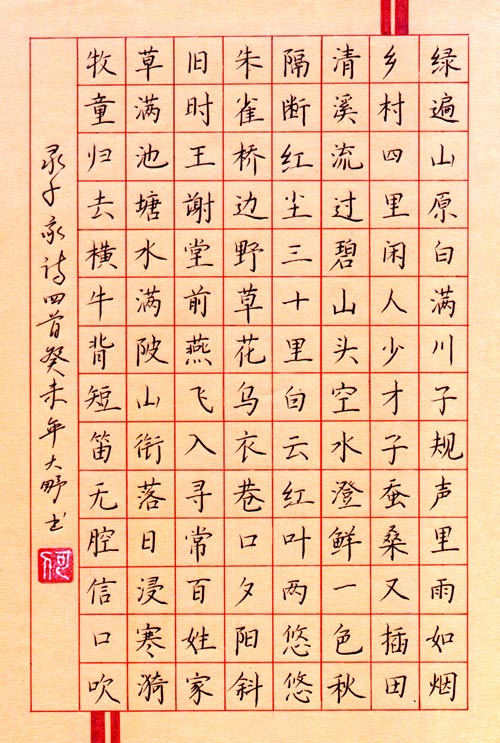 绿遍山原白满川子规声里雨如烟
乡村四里闲人少才子蚕桑又插田
清溪流过碧山头空水澄鲜一色秋
隔断红尘三十里白云红叶两悠悠
朱雀桥边野草花乌衣巷口夕阳斜
旧时王谢堂前燕飞入寻常百姓家
草满池塘水满陂山衔落日浸寒漪
牧童归去横牛背短笛无腔信口吹
录千家诗四首癸未年大野书